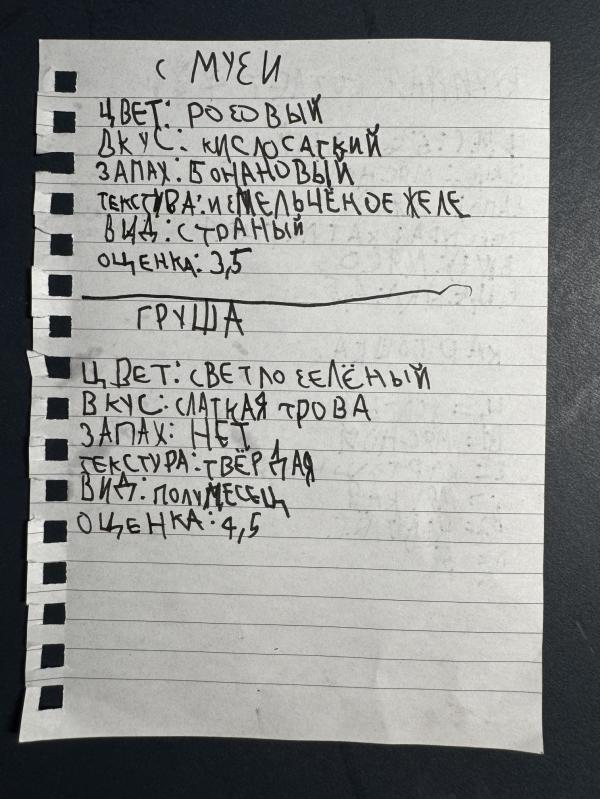 с МУЗИ
ЦВЕТ: РОЗОВЫЙ
ВКУС: КИСЛОСАТКИЙ
ЗАПАХ: БОНАНОВЫЙ
ТЕКСТУВА: ИЗМЕЛЬЧЁНОЕ ЖЕЛЕ
ВИД: СТРАНЫЙ
ОЦЕНКА: 3,5
ГРУША
ЦВЕТ: СВЕТЛОЗЕЛЁНЫЙ
ВКУС: СЛАТКАЯ ТРОВА
ЗАПАХ: НЕТ
ТЕКСТУРА: ТВЁРДАЯ
ВИД: ПОЛУМЕСЕЦ
ОЦЕНКА: 4,5